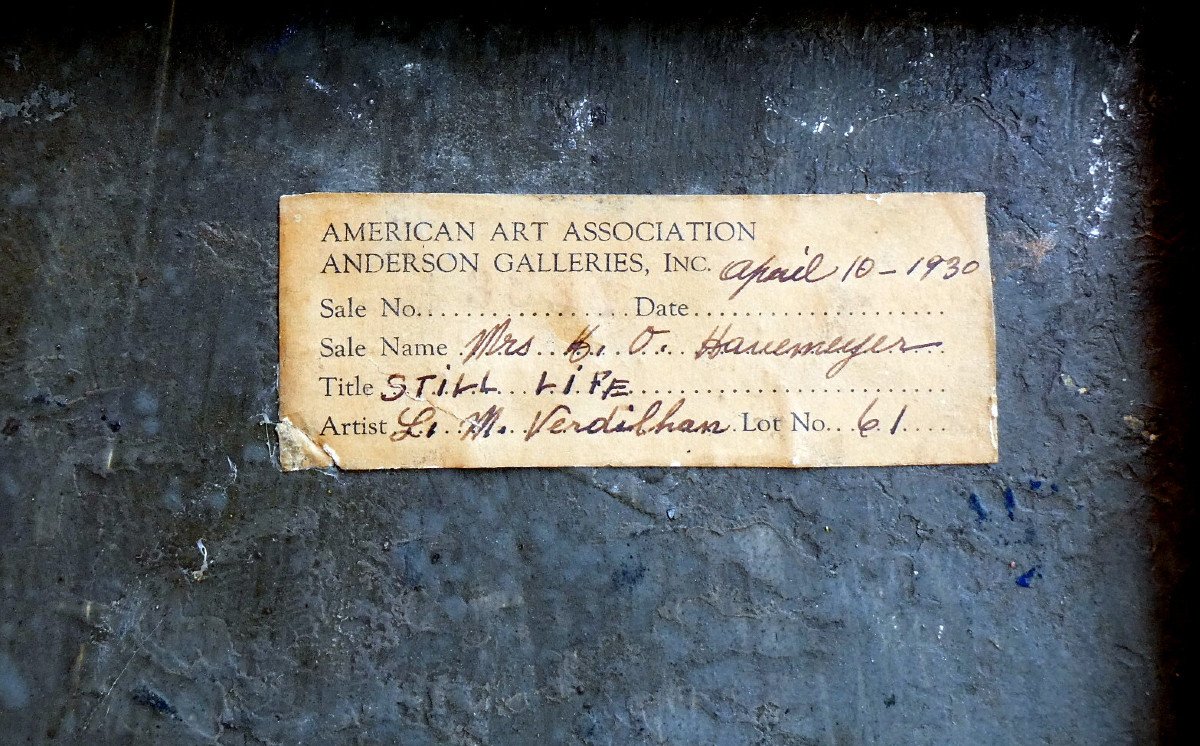 AMERICAN ART ASSOCIATION
ANDERSON GALLERIES, INC. April 10 - 1930
Sale No. Date
Sale Name Mrs H. O. Havemeyer
Title STiLL LiFE
Artist L. M. Verdilhan Lot No. 61